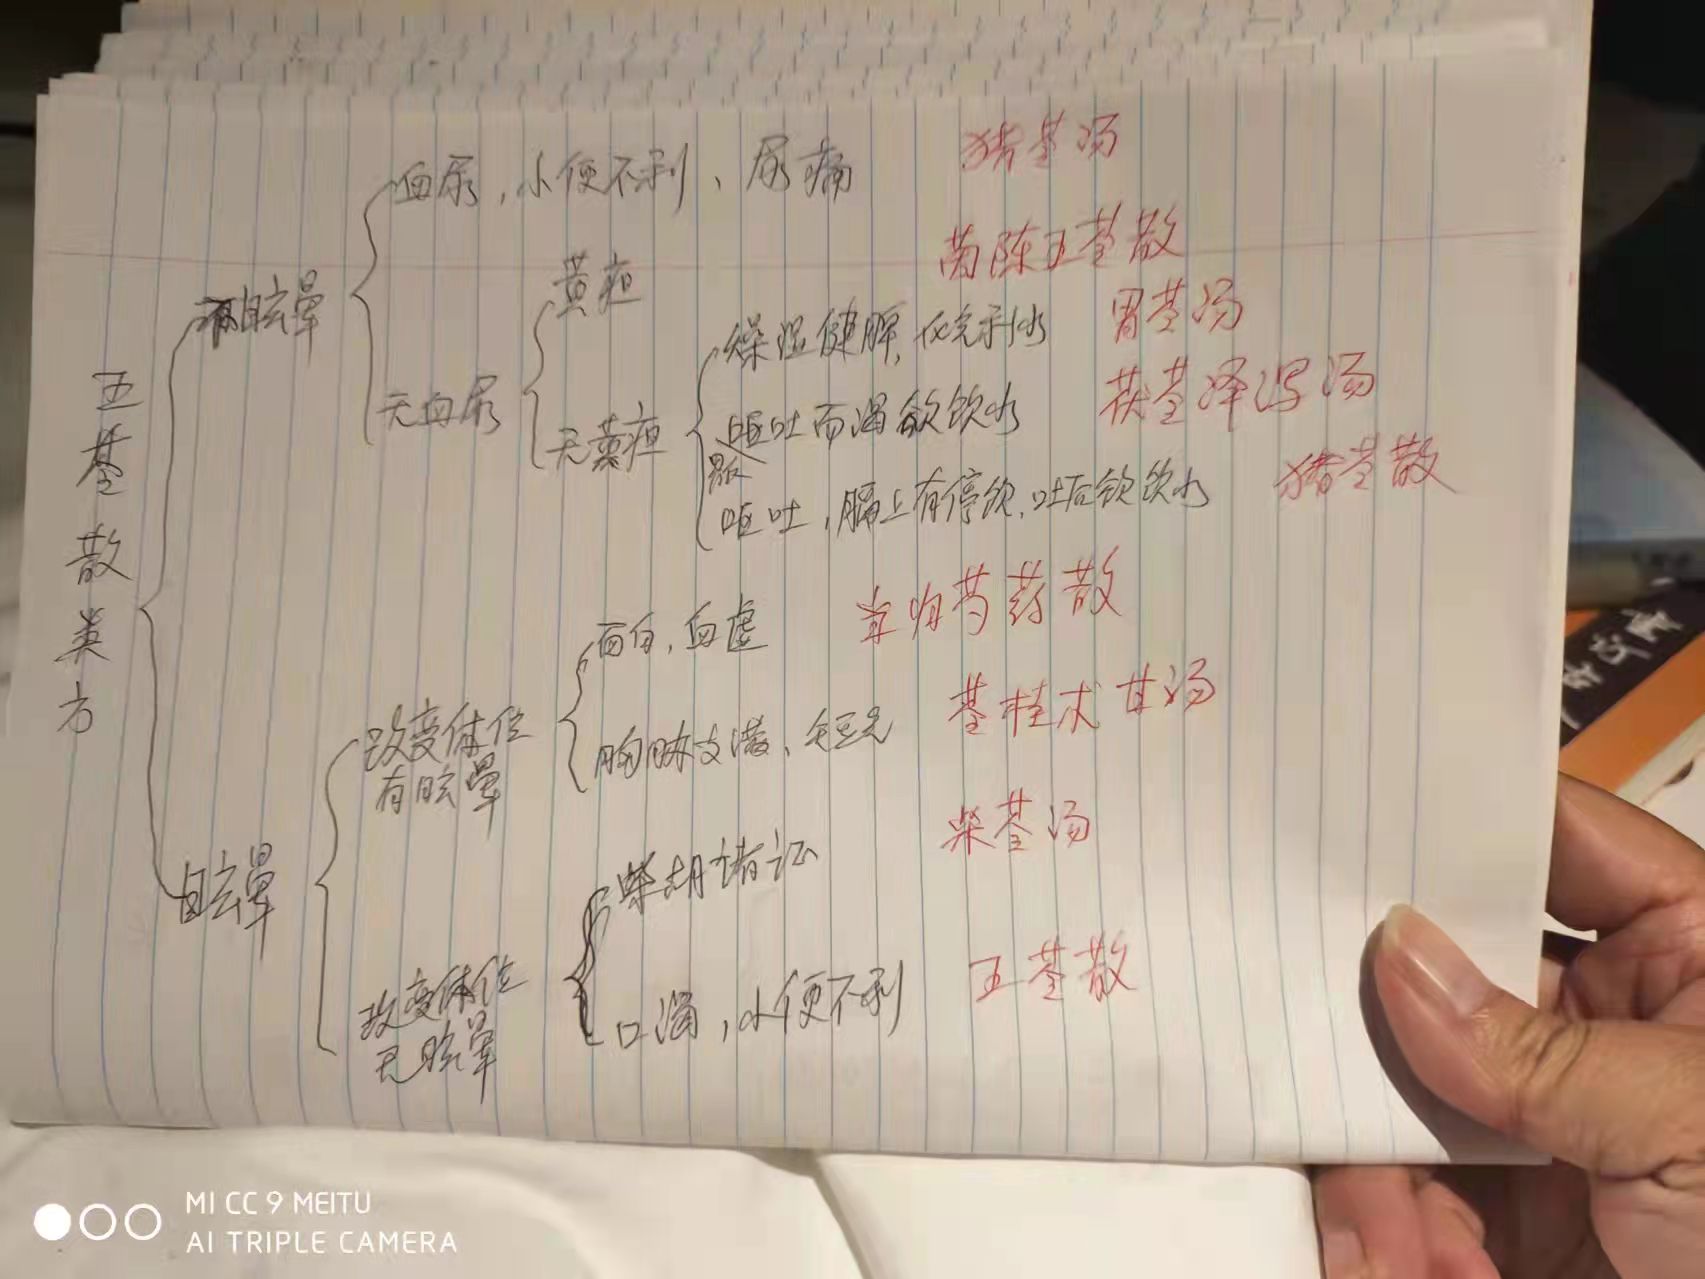 五苓散类方
目眩晕
血尿，小便不利、尿痛 猪苓汤
无血尿
黄疸 茵陈五苓散
无黄疸
燥湿健脾，化气利水 胃苓汤
呕吐而渴欲饮水 茯苓泽泻汤
呕吐，膈上有停饮，吐后欲饮水 猪苓散
目眩晕
改变体位
有眩晕
面白，血虚 当归芍药散
胸胁支满、短气 苓桂术甘汤
改变体位
无眩晕
柴胡诸证 柴苓汤
口渴，小便不利 五苓散
MI CC 9 MEITU
AI TRIPLE CAMERA